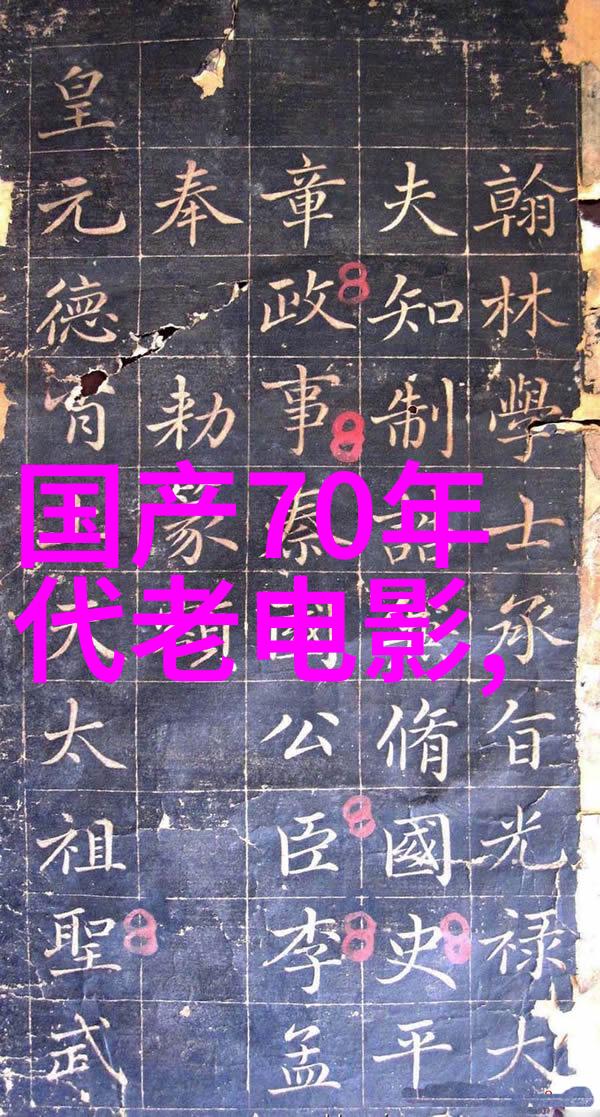 翰林學士承旨光禄大
夫知制誥脩國史平
章政事秦國公臣李孟
奉勅篆
皇元德育天太祖聖武
国产70年
代老电影,